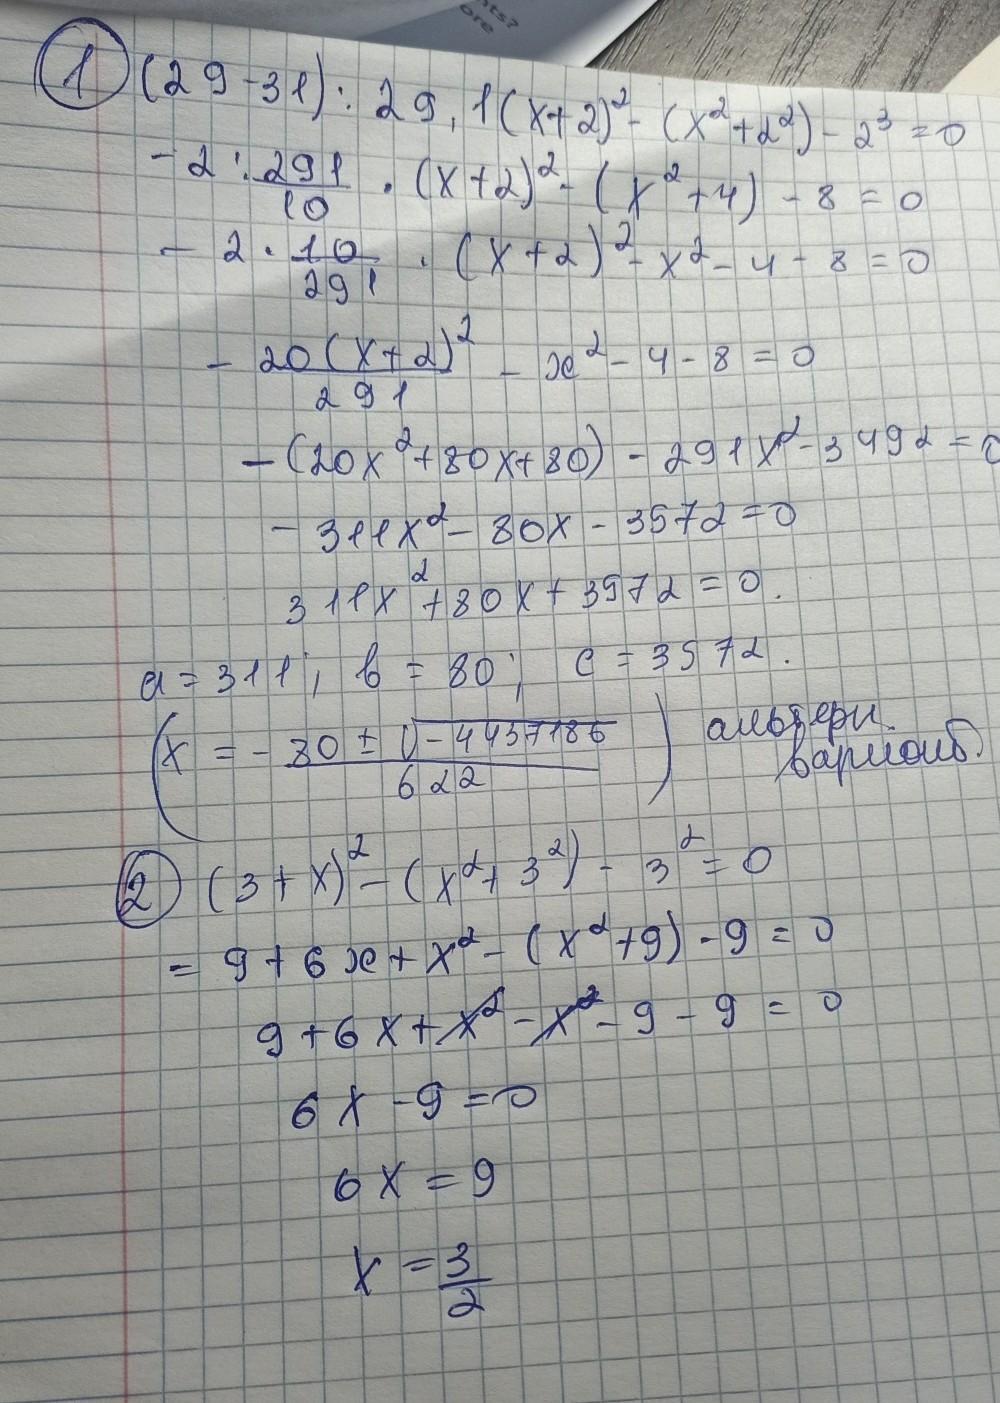 nts?
ore
1 (29-31) : 29,1(x+2)² - (x²+2²) - 2³ = 0
- 2 : 291/10 · (x+2)² - (x²+4) - 8 = 0
- 2 · 10/291 · (x+2)² - x² - 4 - 8 = 0
- 20(x+2)²/291 - x² - 4 - 8 = 0
- (20x²+80x+80) - 291x² - 3492 = 0
- 311x² - 80x - 3572 = 0
311x² + 80x + 3572 = 0.
a = 311; b = 80; c = 3572.
(x = - 80 ± √-4437186/622) альтерн.
2 (3+x)² - (x²+3²) - 3² = 0
= 9 + 6x + x² - (x²+9) - 9 = 0
9 + 6x + x² - x² - 9 - 9 = 0
6x - 9 = 0
6x = 9
x = 3/2